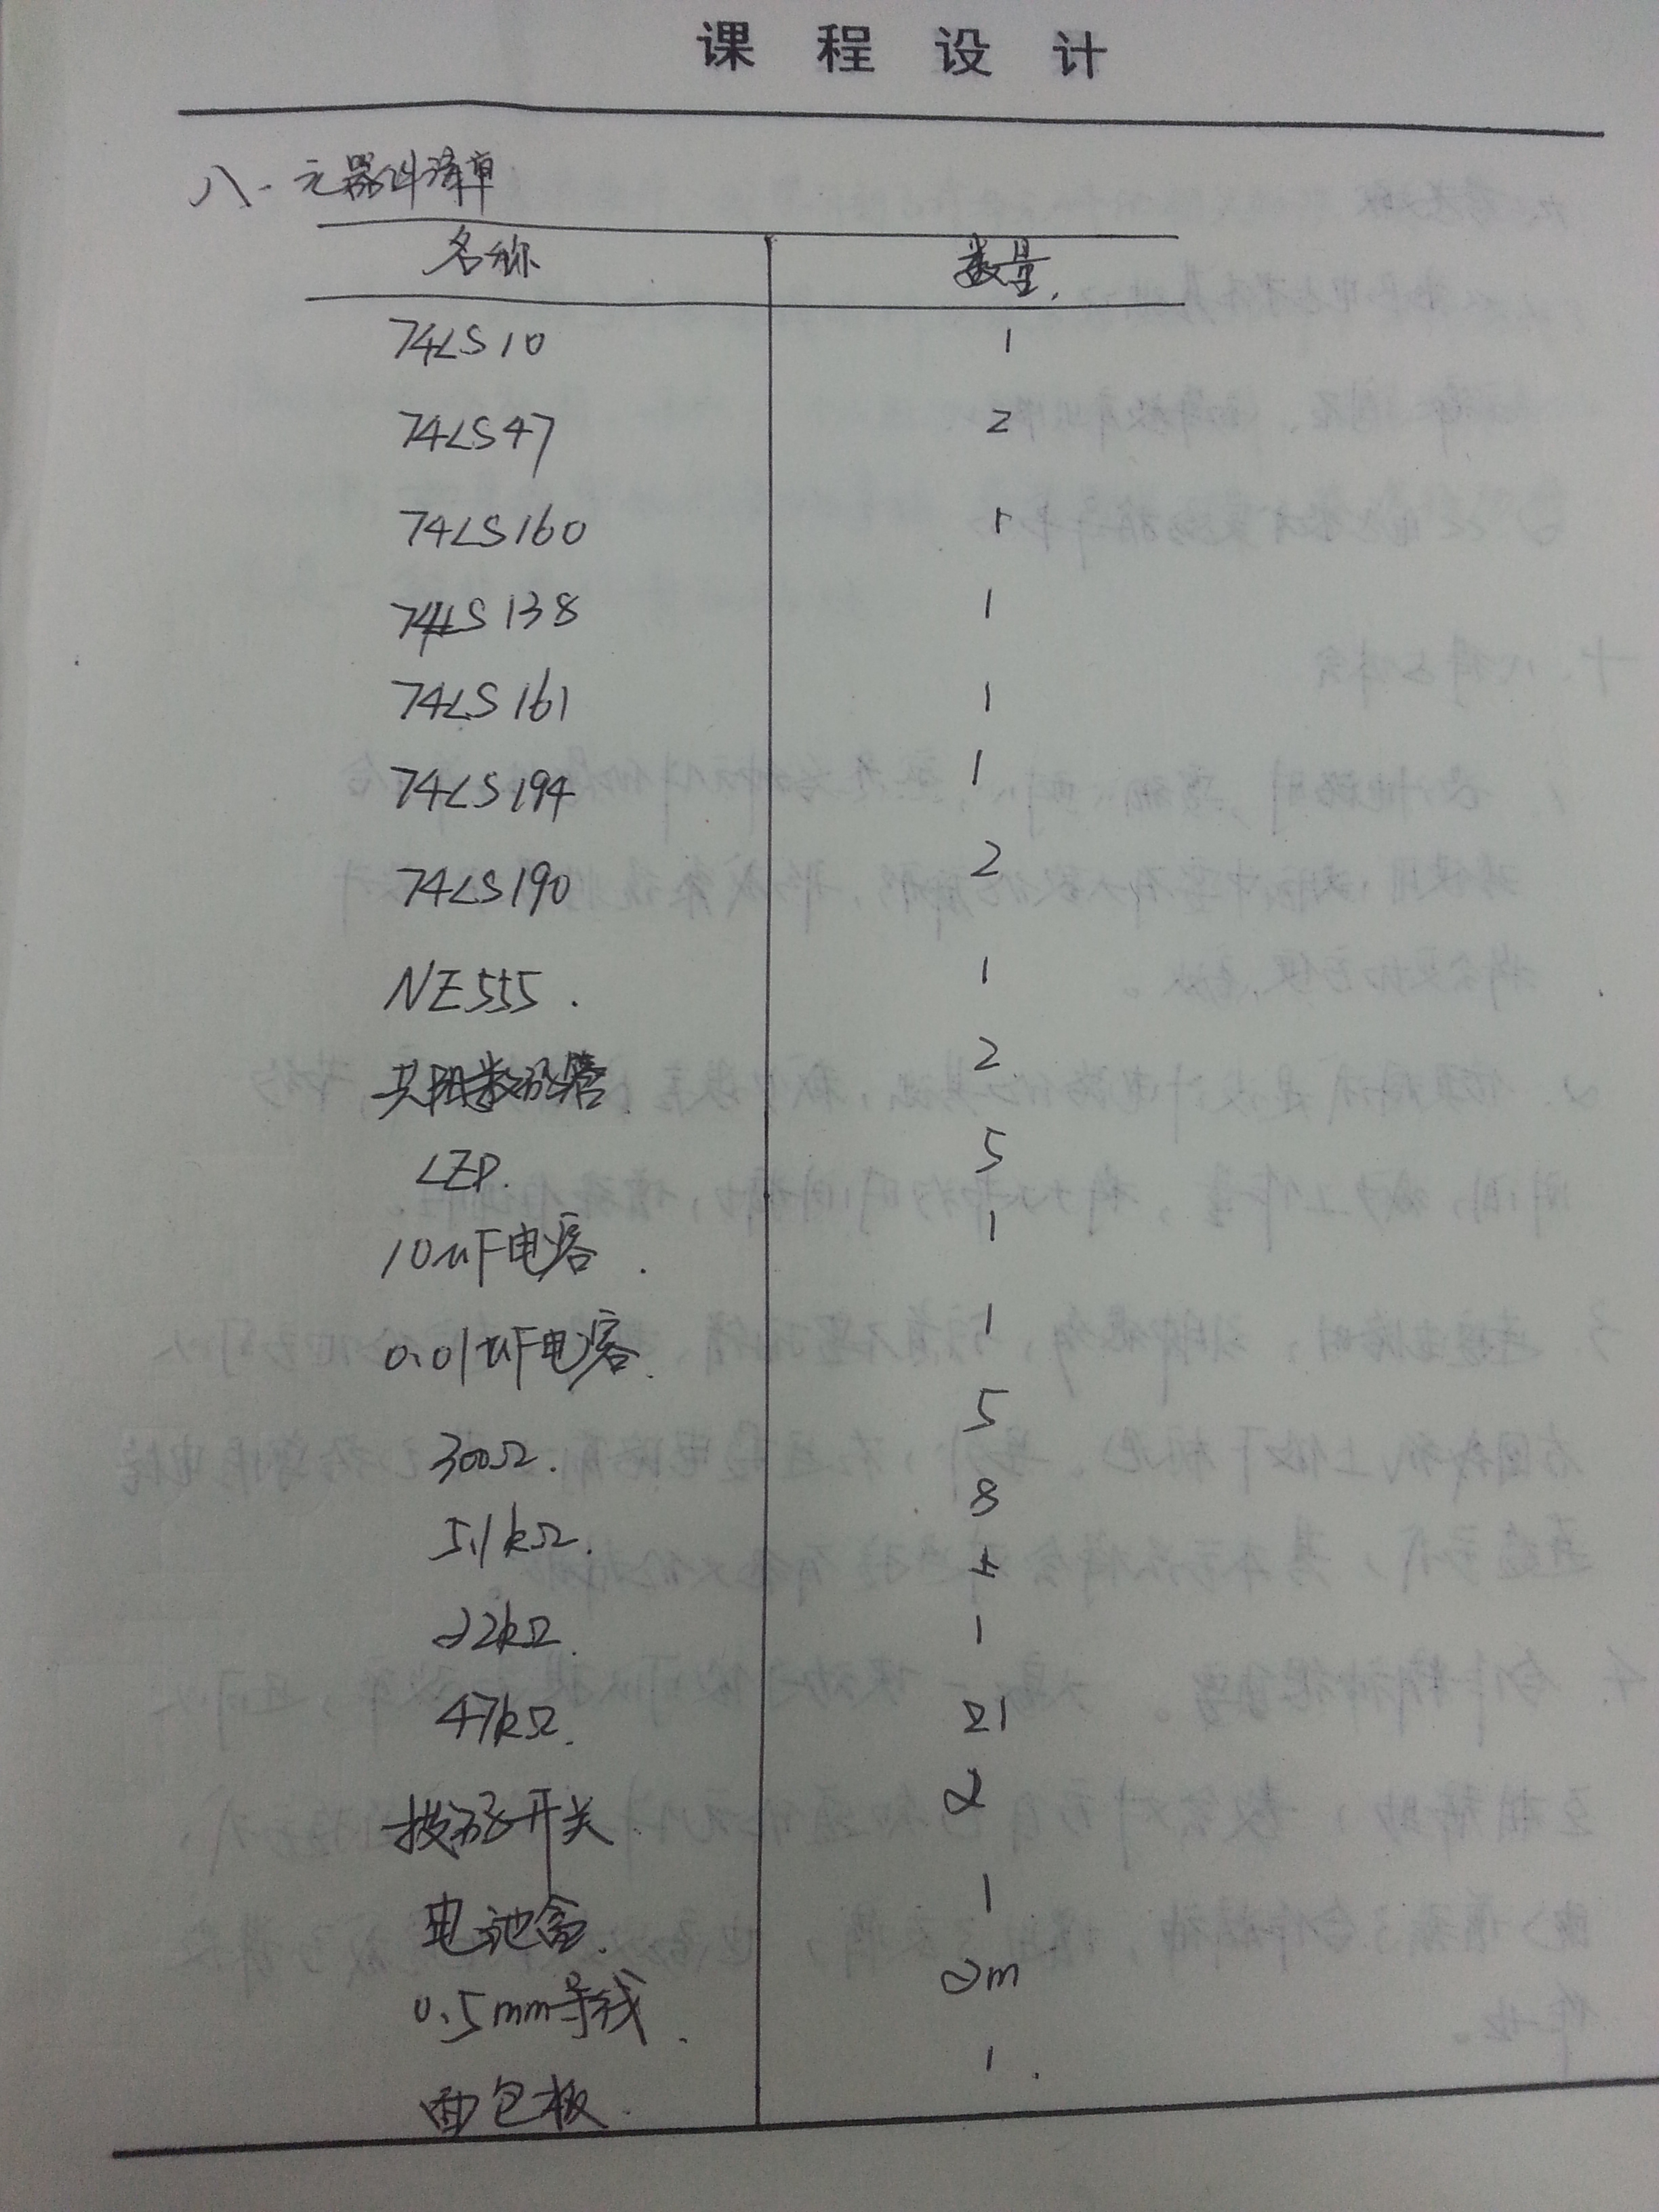 课 程 设 计
八、元器件清单
名称 数量.
74LS10 1
74LS47 2
74LS160 1
74LS138 1
74LS161 1
74LS194 1
74LS190 2
NE555. 1
共阳数码管. 2
LED. 5
10uF电容. 1
0.01uF电容. 1
300Ω. 5
5.1kΩ. 8
22kΩ.
47kΩ. 1
拨码开关. 2
电池盒. 1
0.5mm导线. 2m
面包板. 1.